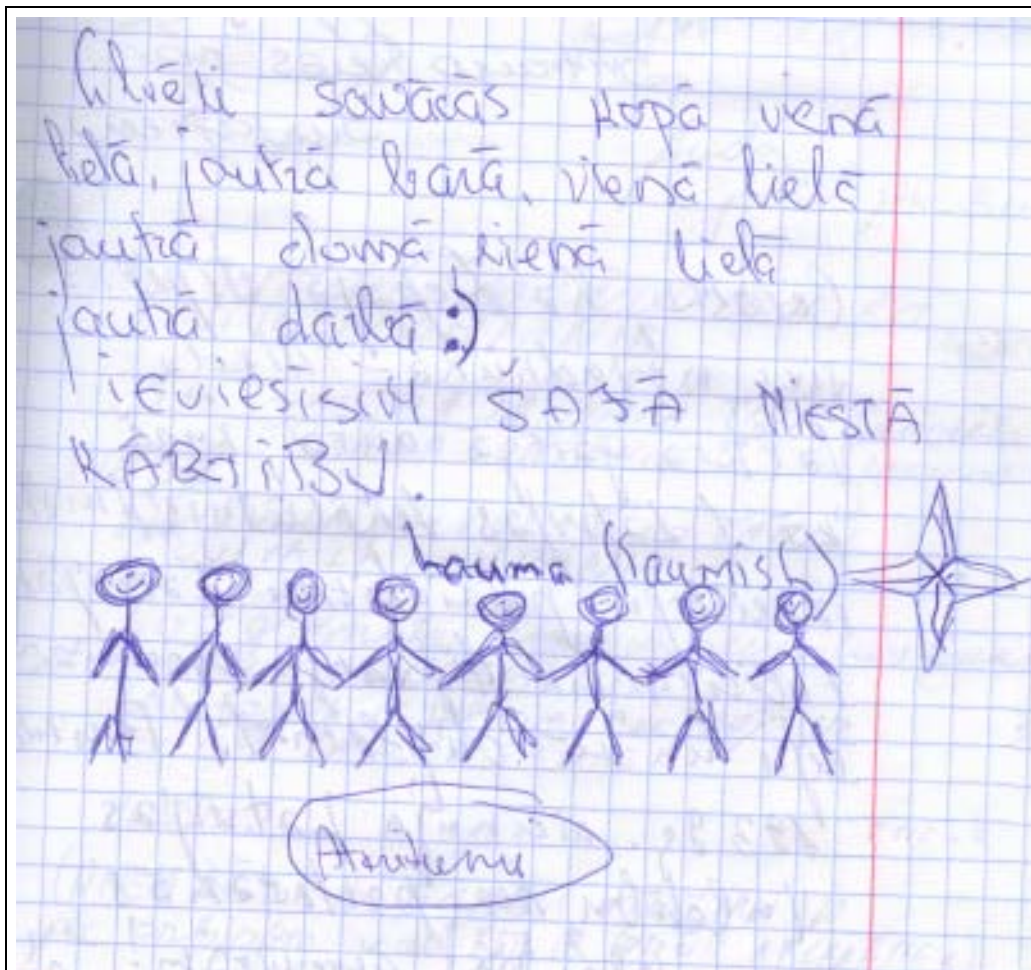 Cilvēki savācās kopā vienā
lielā, jautrā barā, vienā lielā
jautrā domā, vienā lielā
jautrā darbā :)
IEVIESĪSIM ŠAJĀ MIESTĀ
KĀRTĪBU.
Lauma (Laumish)